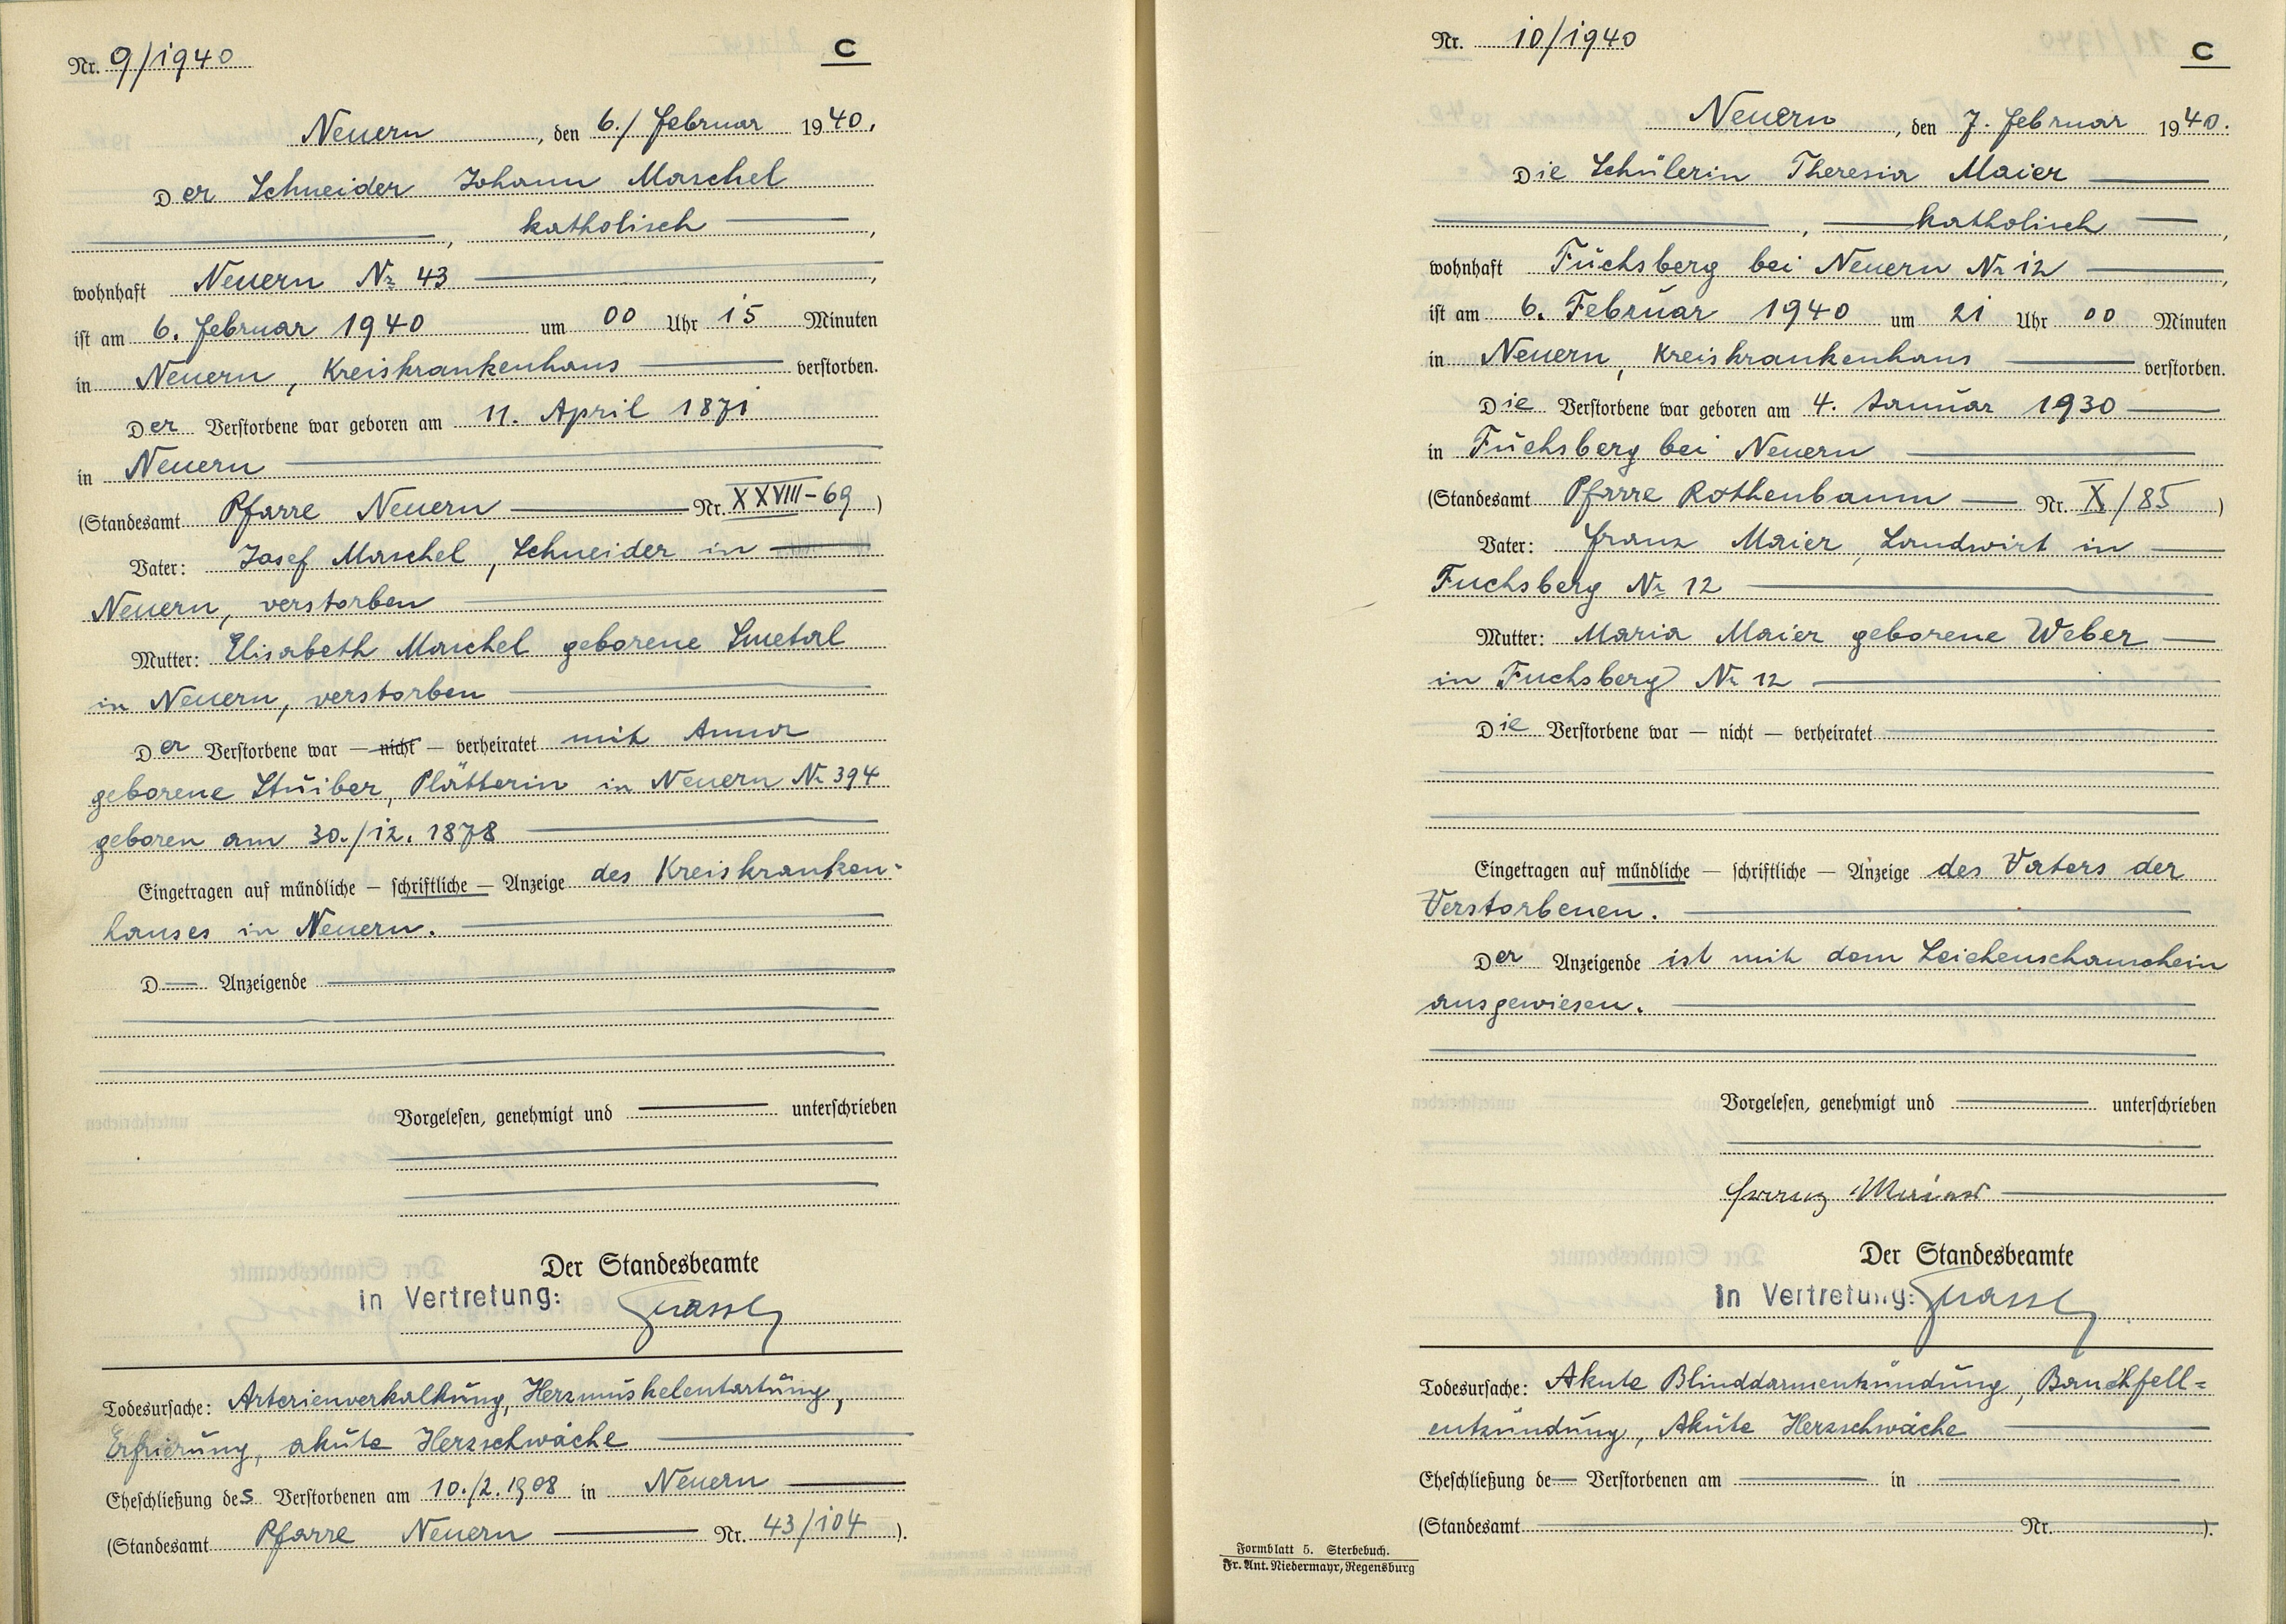 Nr. 9/1940
C
Neuern, den 6./ Februar 1940.
Der Schneider Johann Maschel
, katholisch ,
wohnhaft Neuern Nr 43 ,
ist am 6. Februar 1940 um 00 Uhr 15 Minuten
in Neuern, Kreiskrankenhaus verstorben.
Der Verstorbene war geboren am 11. April 1871
in Neuern
(Standesamt Pfarre Neuern Nr. XXVIII-69)
Vater: Josef Maschel, Schneider in
Neuern, verstorben
Mutter: Elisabeth Maschel geborene Smetal
in Neuern, verstorben
Der Verstorbene war — nicht — verheiratet mit Anna
geborene Stuiber, Plätterin in Neuern Nr 394
geboren am 30./12. 1878
Eingetragen auf mündliche — schriftliche — Anzeige des Kreiskranken-
hauses in Neuern.
D— Anzeigende
Vorgelesen, genehmigt und unterschrieben
Der Standesbeamte
in Vertretung:
Todesursache: Arterienverkalkung, Herzmuskelentartung,
Erfrierung, akute Herzschwäche
Eheschließung des Verstorbenen am 10./2.1908 in Neuern
(Standesamt Pfarre Neuern Nr. 43/104).
Nr. 10/1940
C
Neuern, den 7. Februar 1940.
Die Schülerin Theresia Maier
, katholisch ,
wohnhaft Fuchsberg bei Neuern Nr 12 ,
ist am 6. Februar 1940 um 21 Uhr 00 Minuten
in Neuern, Kreiskrankenhaus verstorben.
Die Verstorbene war geboren am 4. Januar 1930
in Fuchsberg bei Neuern
(Standesamt Pfarre Rothenbaum Nr. X/85)
Vater: Franz Maier, Landwirt in
Fuchsberg Nr 12
Mutter: Maria Maier geborene Weber
in Fuchsberg Nr 12
Die Verstorbene war — nicht — verheiratet
Eingetragen auf mündliche — schriftliche — Anzeige des Vaters der
Verstorbenen.
Der Anzeigende ist mit dem Leichenschauschein
ausgewiesen.
Vorgelesen, genehmigt und unterschrieben
Franz
Der Standesbeamte
In Vertretung:
Todesursache: Akute Blinddarmentzündung, Bauchfell=
entzündung, Akute Herzschwäche
Eheschließung de— Verstorbenen am in
(Standesamt Nr. ).
Formblatt 5. Sterbebuch.
Fr. Ant. Niedermayr, Regensburg